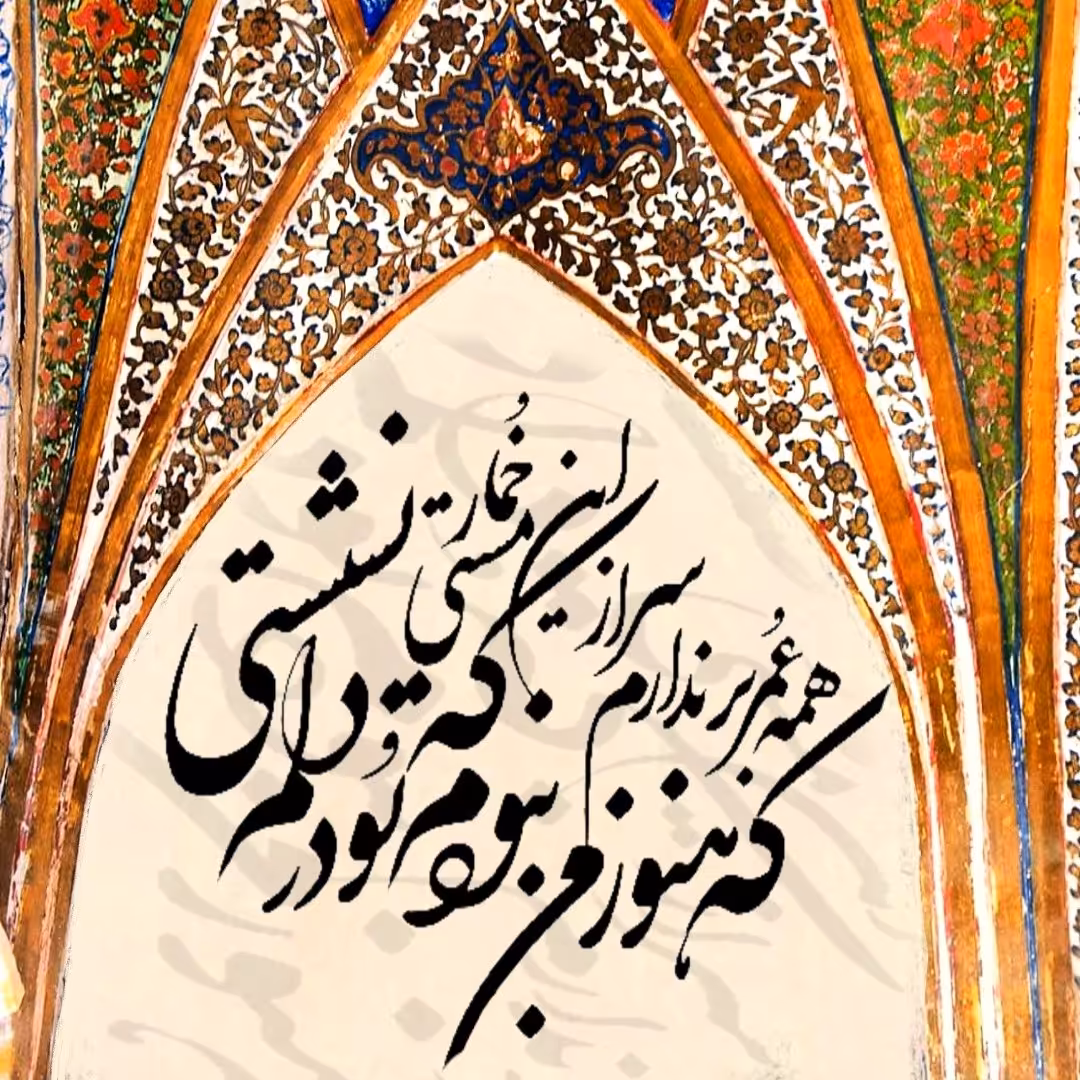 همه عُمر برندارم سر از این خُمار مستی
که هنوز من نبودم که تُو در دلم نشستی